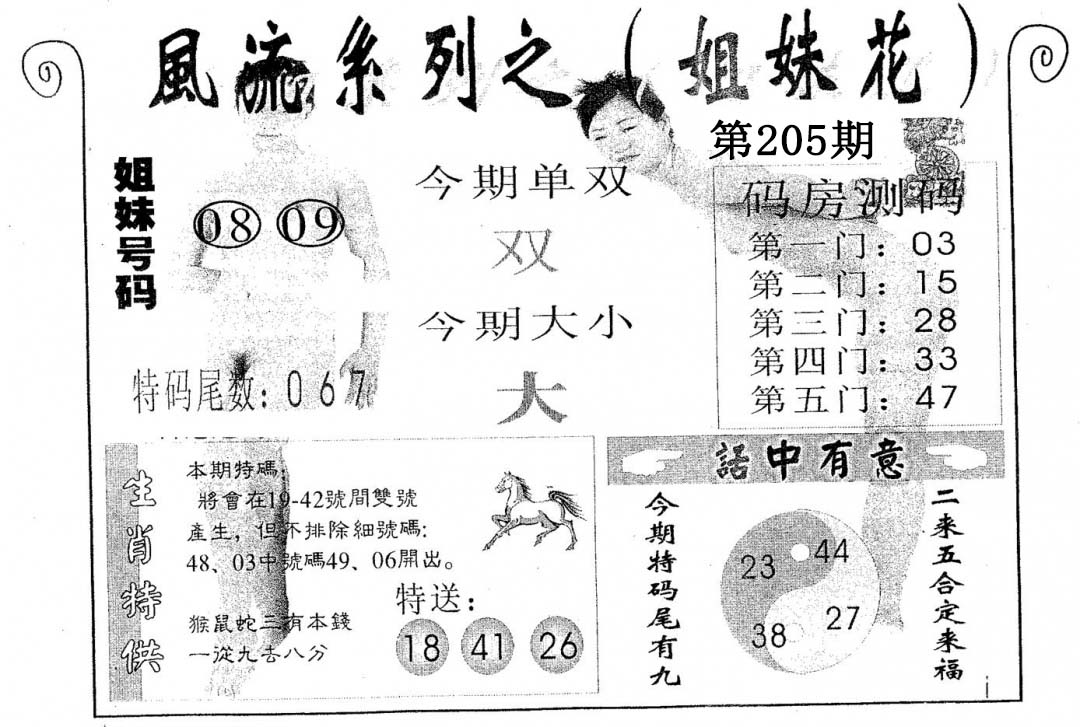 風流系列之（姐妹花）
第205期
姐妹号码
08 09
特码尾数：067
今期单双
双
今期大小
大
码房测码
第一门：03
第二门：15
第三门：28
第四门：33
第五门：47
生肖特供
本期特碼：
將會在19-42號間雙號
產生，但不排除細號碼：
48、03中號碼49、06開出。
猴鼠蛇三有本錢
一從九去八分
特送：
18 41 26
話中有意
今期特码尾有九
23 44
38 27
二来五合定来福